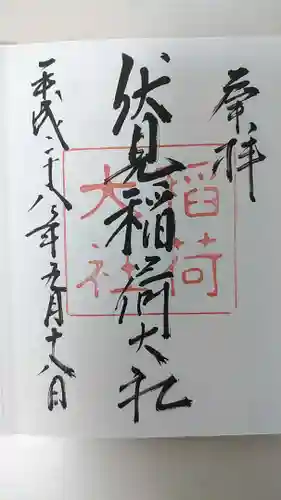 奉拝
伏見稲荷大社
稲荷
大社
平成二十八年五月十八日